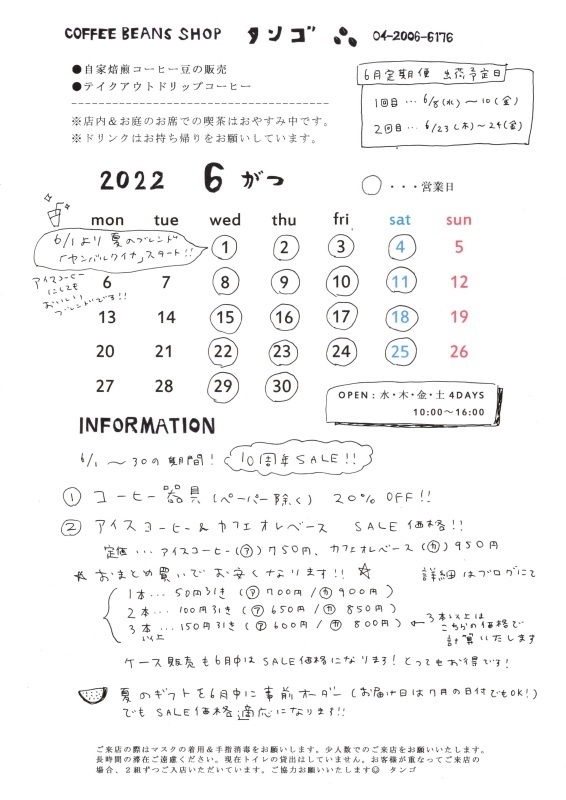 COFFEE BEANS SHOP タンゴ 04-2006-6176
●自家焙煎コーヒー豆の販売
●テイクアウトドリップコーヒー
※店内&お庭のお席での喫茶はおやすみ中です。
※ドリンクはお持ち帰りをお願いしています。
6月定期便 出荷予定日
1回目… 6/8(水)〜10(金)
2回目… 6/23(木)〜24(金)
2022 6がつ
○・・・営業日
mon tue wed thu fri sat sun
6/1より夏のブレンド
「ヤンバルクイナ」スタート!!
1 2 3 4 5
アイスコーヒー
にしても
おいしい
ブレンドです!!
6 7 8 9 10 11 12
13 14 15 16 17 18 19
20 21 22 23 24 25 26
27 28 29 30
OPEN:水・木・金・土 4DAYS
10:00〜16:00
INFORMATION
6/1〜30の期間! 10周年SALE!!
① コーヒー器具(ペーパー除く) 20%OFF!!
② アイスコーヒー&カフェオレベース SALE価格!!
定価… アイスコーヒー(㋐)750円、カフェオレベース(㋕)950円
☆おまとめ買いでお安くなります!!☆ 詳細はブログにて
1本… 50円引き (㋐700円/㋕900円)
2本… 100円引き (㋐650円/㋕850円)
3本以上… 150円引き (㋐600円/㋕800円) ←3本以上は
こちらの価格で
計算いたします
ケース販売も6月中はSALE価格になります!とってもお得です!
夏のギフトを6月中に事前オーダー(お届け日は7月の日付でもOK!)
でもSALE価格適応になります!!
ご来店の際はマスクの着用&手指消毒をお願いします。少人数でのご来店をお願いいたします。
長時間の滞在ご遠慮ください。現在トイレの貸出はしていません。お客様が重なってご来店の
場合、2組ずつご入店いただいています。ご協力お願いいたします☺ タンゴ